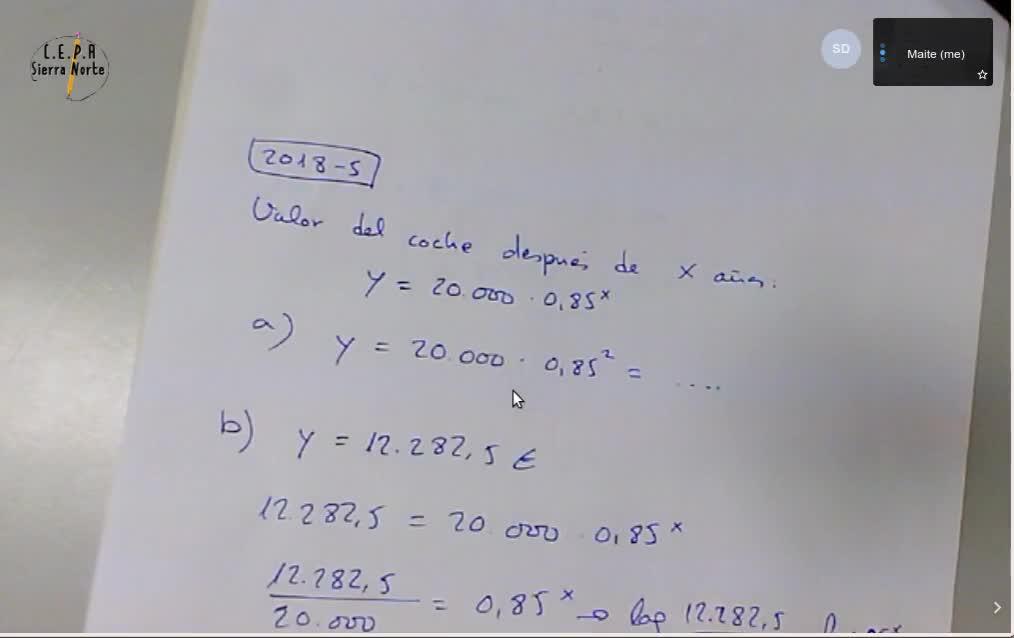 C.E.P.A
Sierra Norte
SD
Maite (me)
2018-5
Valor del coche después de x años:
y = 20.000 · 0,85ˣ
a) y = 20.000 · 0,85² = ....
b) y = 12.282,5 €
12.282,5 = 20.000 · 0,85ˣ
12.282,5
20.000
= 0,85ˣ → log 12.282,5